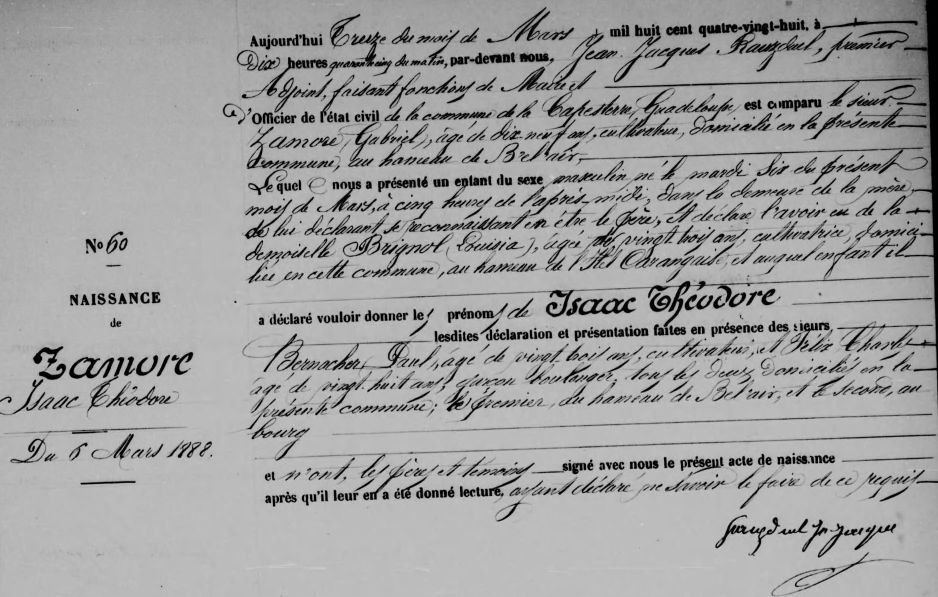 N° 60
NAISSANCE
de
Zamore
Isaac Théodore
Du 6 Mars 1888.
Aujourd'hui Treize du mois de Mars mil huit cent quatre-vingt-huit, à
Dix heures quarante cinq du matin, par-devant nous, Jean Jacques premier
Adjoint, faisant fonctions de Maire et
d'Officier de l'état civil de la commune de la Capesterre, Guadeloupe est comparu le sieur
Zamore (Gabriel), âgé de dix-neuf ans, cultivateur, domicilié en la présente
commune, au hameau de Bel-air,
Lequel nous a présenté un enfant du sexe masculin né le mardi six du présent
mois de Mars, à cinq heures de l'après-midi, dans la demeure de la mère,
de lui déclarant se reconnaissant en être le père, et déclare l'avoir eu de la
demoiselle Brignol (Louisia), âgée de vingt trois ans, cultivatrice, domici-
liée en cette commune, au hameau de l'Ilet et auquel enfant il
a déclaré vouloir donner les prénoms de Isaac Théodore
lesdites déclaration et présentation faites en présence des sieurs
Paul, âgé de vingt trois ans, cultivateur, et Félix Charles
âgé de vingt huit ans, garçon boulanger, tous les deux domiciliés en la
présente commune; le premier, au hameau de Bel'air, et le second, au
bourg
et n'ont, les père et témoins signé avec nous le présent acte de naissance
après qu'il leur en a été donné lecture, ayant déclaré ne savoir le faire de ce requis